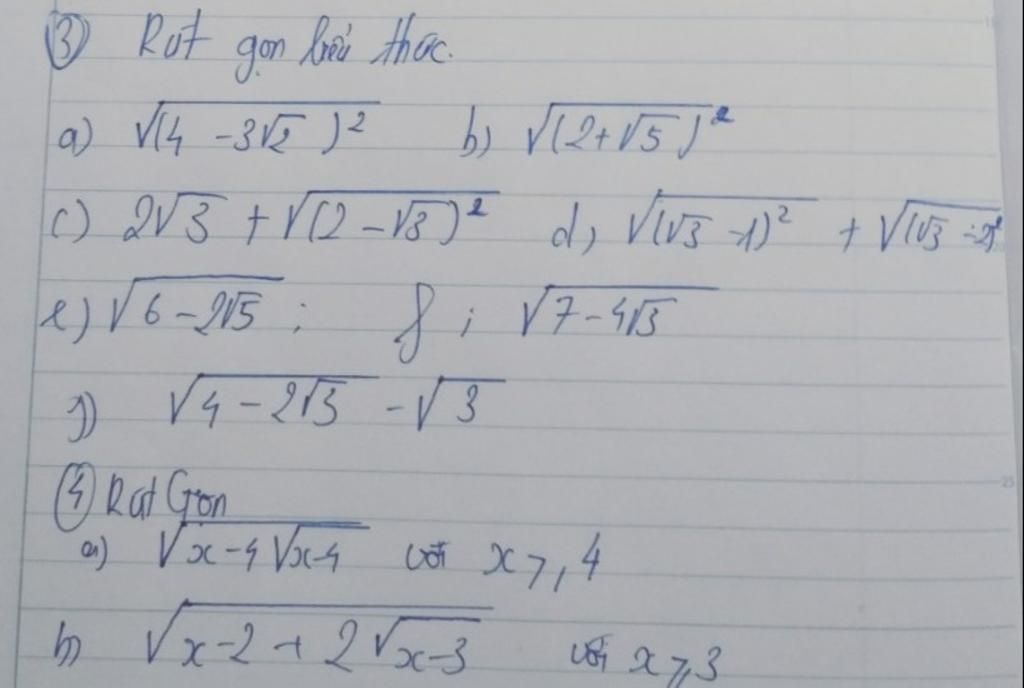 ③ Rút gọn biểu thức.
a) √(4 - 3√2)² b) √(2 + √5)²
c) 2√3 + √(2 - √3)² d, √(√3 - 1)² + √(√3 - 2)²
e) √6 - 2√5 ; f ; √7 - 4√3
g) √4 - 2√3 - √3
④ Rút Gọn
a) √x - 4√x-4 với x ≥, 4
b) √x - 2 + 2√x-3 với x ≥ 3